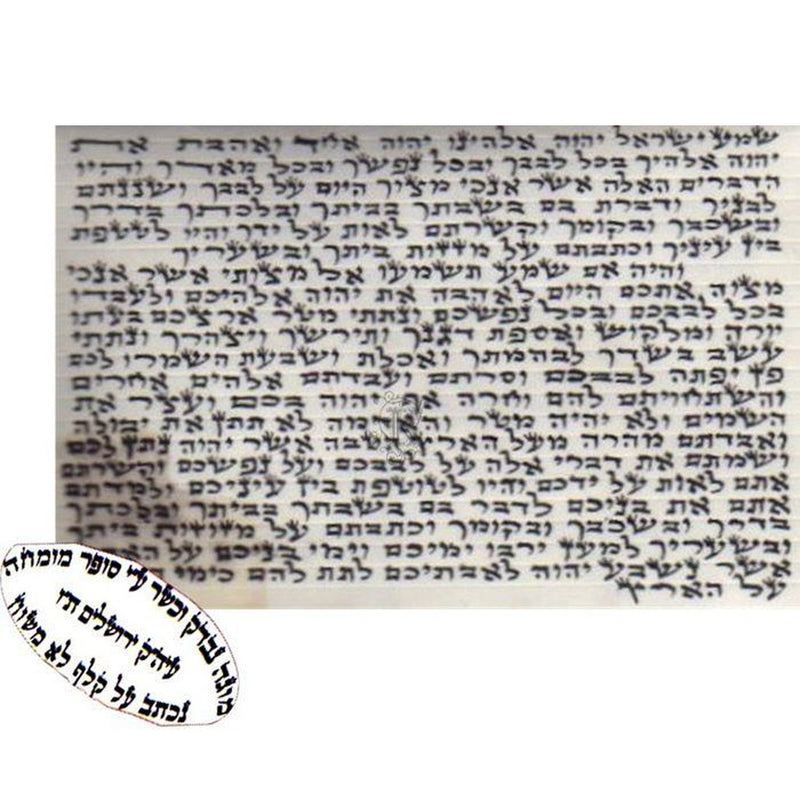 שמע ישראל יהוה אלהינו יהוה אחד ואהבת את
יהוה אלהיך בכל לבבך ובכל נפשך ובכל מאדך והיו
הדברים האלה אשר אנכי מצוך היום על לבבך ושננתם
לבניך ודברת בם בשבתך בביתך ובלכתך בדרך
ובשכבך ובקומך וקשרתם לאות על ידך והיו לטטפת
בין עיניך וכתבתם על מזזות ביתך ובשעריך
והיה אם שמע תשמעו אל מצותי אשר אנכי
מצוה אתכם היום לאהבה את יהוה אלהיכם ולעבדו
בכל לבבכם ובכל נפשכם ונתתי מטר ארצכם בעתו
יורה ומלקוש ואספת דגנך ותירשך ויצהרך ונתתי
עשב בשדך לבהמתך ואכלת ושבעת השמרו לכם
פן יפתה לבבכם וסרתם ועבדתם אלהים אחרים
והשתחויתם להם וחרה אף יהוה בכם ועצר את
השמים ולא יהיה מטר לא תתן את יבולה
ואבדתם מהרה מעל הארץ אשר יהוה נתן לכם
ושמתם את דברי אלה על לבבכם ועל נפשכם וקשרתם
אתם לאות על ידכם והיו לטוטפת בין עיניכם ולמדתם
אתם את בניכם לדבר בם בשבתך בביתך ובלכתך
בדרך ובשכבך ובקומך וכתבתם על מזוזות ביתך
ובשעריך למען ירבו ימיכם וימי בניכם על
אשר נשבע יהוה לאבתיכם לתת להם כימי
על הארץ
מוגה נבדק וכשר ע"י סופר מומחה
עיה"ק ירושלים ת"ו
נכתב על קלף לא משוח